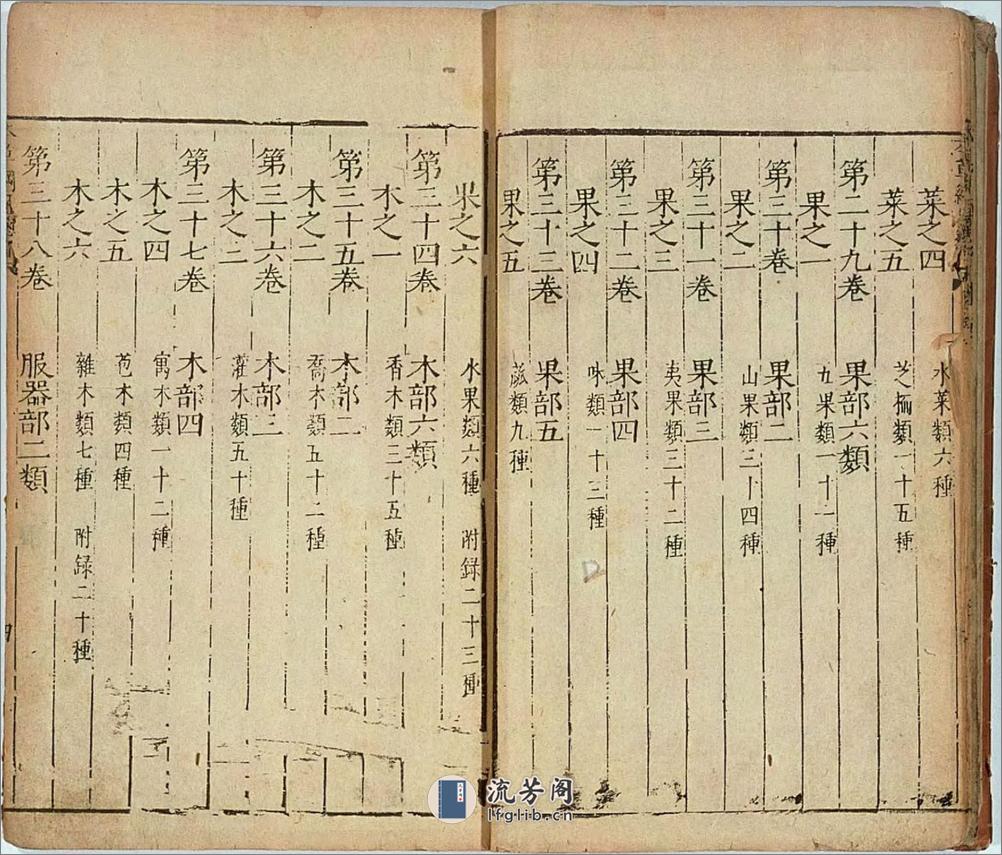 菜之四 水菜類六種
菜之五 芝栭類一十五種
第二十九卷 果部六類
果之一 果類一十一種
第三十卷 果部二
果之二 山果類三十四種
第三十一卷 果部三
果之三 夷果類三十二種
第三十二卷 果部四
果之四 味類一十三種
第三十三卷 果部五
果之五 蓏類九種
果之六 水果類六種 附録二十三種
第三十四卷 木部六類
木之一 香木類三十五種
第三十五卷 木部二
木之二 喬木類五十二種
第三十六卷 木部三
木之三 灌木類五十種
第三十七卷 木部四
木之四 寓木類一十二種
木之五 苞木類四種
木之六 雜木類七種 附録二十種
第三十八卷 服器部二類
流芳阁
lfglib.cn